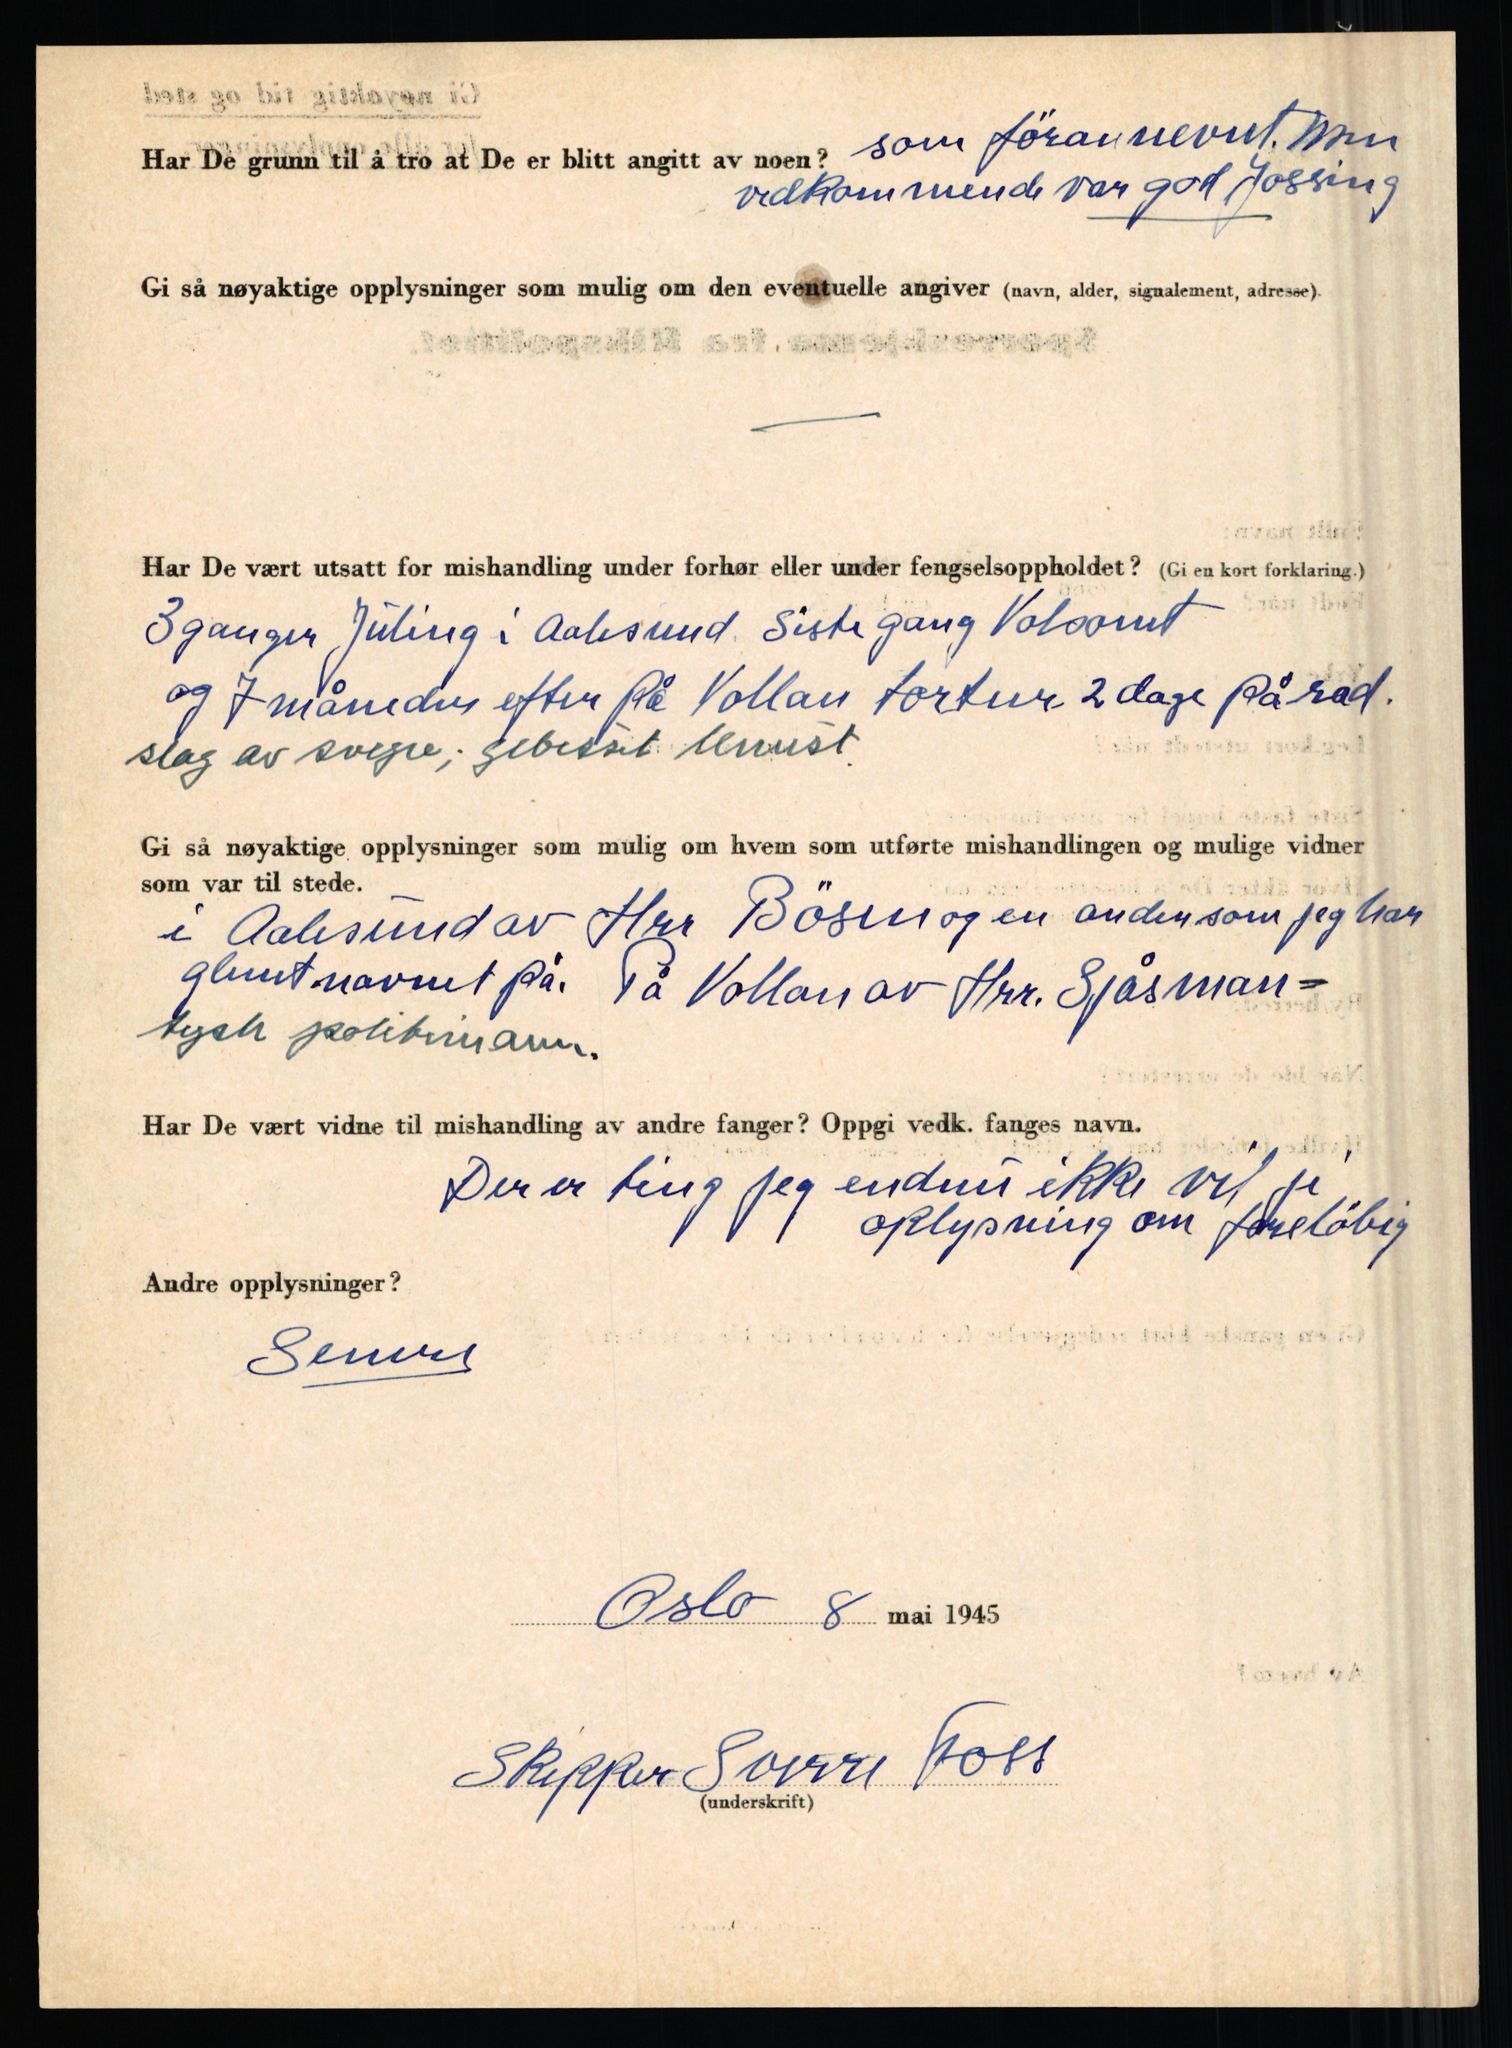 Har De grunn til å tro at De er blitt angitt av noen? som föran nevnt. Men
vedkommende var god Jøssing
Gi så nøyaktige opplysninger som mulig om den eventuelle angiver (navn, alder, signalement, adresse).
Har De vært utsatt for mishandling under forhør eller under fengselsoppholdet? (Gi en kort forklaring.)
3 ganger Jüling i Aalesund. Siste gang Volsomt
og 7 måneder efter på Vollan tortur 2 dage på rad.
slag av svepe; gebisset knust.
Gi så nøyaktige opplysninger som mulig om hvem som utførte mishandlingen og mulige vidner
som var til stede.
i Aalesund av Herr Bösm og en anden som jeg har
glemt navnet på. På Vollan av Herr. Sjåsman =
tysk politimann.
Har De vært vidne til mishandling av andre fanger? Oppgi vedk. fanges navn.
Der er ting jeg endnu ikke vil gi
oplysning om foreløbig
Andre opplysninger?
Senere
Oslo 8 mai 1945
Skipper Sverre Foss
(underskrift)